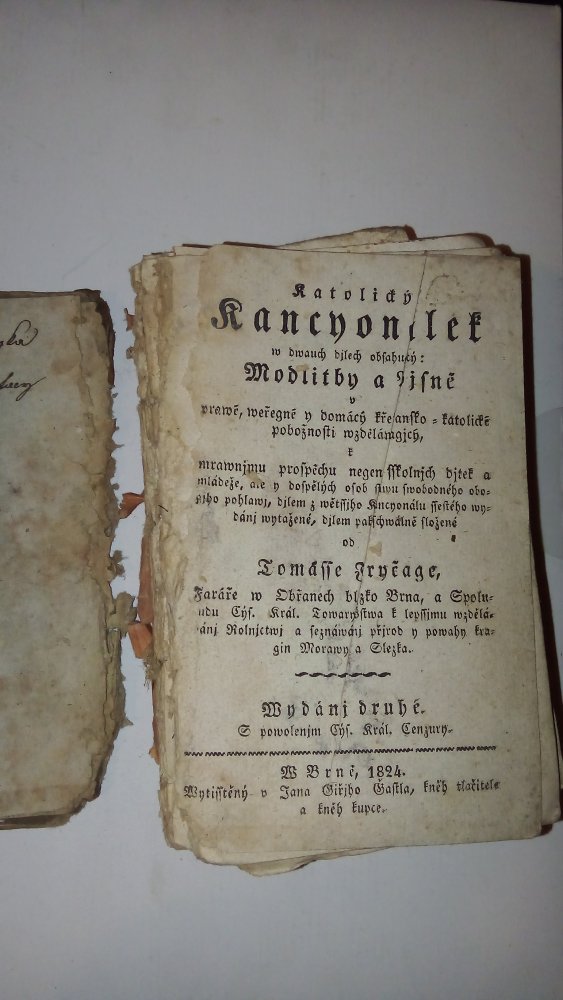 Katolický
Kancyonálek
w dwauch djlech obsahugjcý:
Modlitby a Pjsně
prawé, weřegné y domácý křesťansko-katolické
pobožnosti wzděláwagjcých,
k
mrawnjmu prospěchu negen sskolnjch djtek a
mládeže, ale y dospělých osob stawu swobodného obo-
gjho pohlawj, djlem z wětssjho Kancyonálu ssestého wy-
dánj wytažené, djlem složené
od
Tomásse Fryčage,
Faráře w Obřanech bljzko Brna, a Spolu-
audu Cýs. Král. Towaryšstwa k lepssjmu wzdělá-
wánj Rolnjctwj a seznáwánj přjrod y powahy kra-
gin Morawy a Slezka.
Wydánj druhé.
S powolenjm Cýs. Král. Cenzury.
W Brně, 1824.
Wytisstěný v Jana Giřjho Gastla, kněh tlačitele
a kněh kupce.